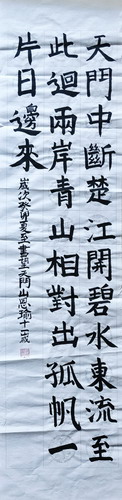 天門中斷楚江開碧水東流至
此迴兩岸青山相對出孤帆一
片日邊來
歲次癸卯夏至書望天門山思瑜十一歲